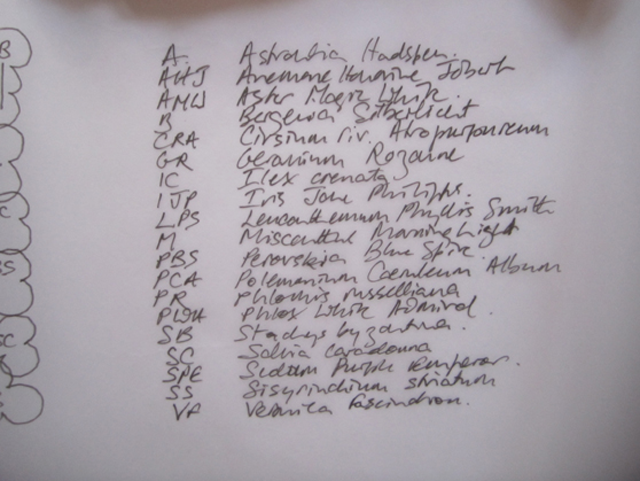 B
A. Astrantia Hadspen.
AHJ Anemone Honorine Jobert
AMW Aster Magic White.
B Bergenia Silberlicht
CRA Cirsium riv. Atropurpureum
GR Geranium Rozanne
IC Ilex crenata
IJP Iris Jane Philipps.
LPS Leucanthemum Phyllis Smith
M Miscanthus Morning Light
PBS Perovskia Blue Spire.
PCA Polemonium Caeruleum Album
PR Phlomis russelliana
PWA Phlox White Admiral.
SB Stachys byzantina.
SC Salvia caradonna
SPE Sedum Purple emperor.
SS Sisyrindium striatum
VF Veronica